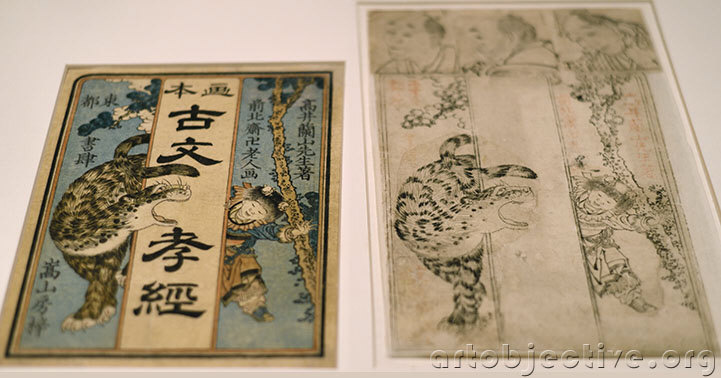 高井蘭山先生著
前北齋卍老人画
画本
古文孝經
東都
書肆
嵩山房梓
artobjective.org